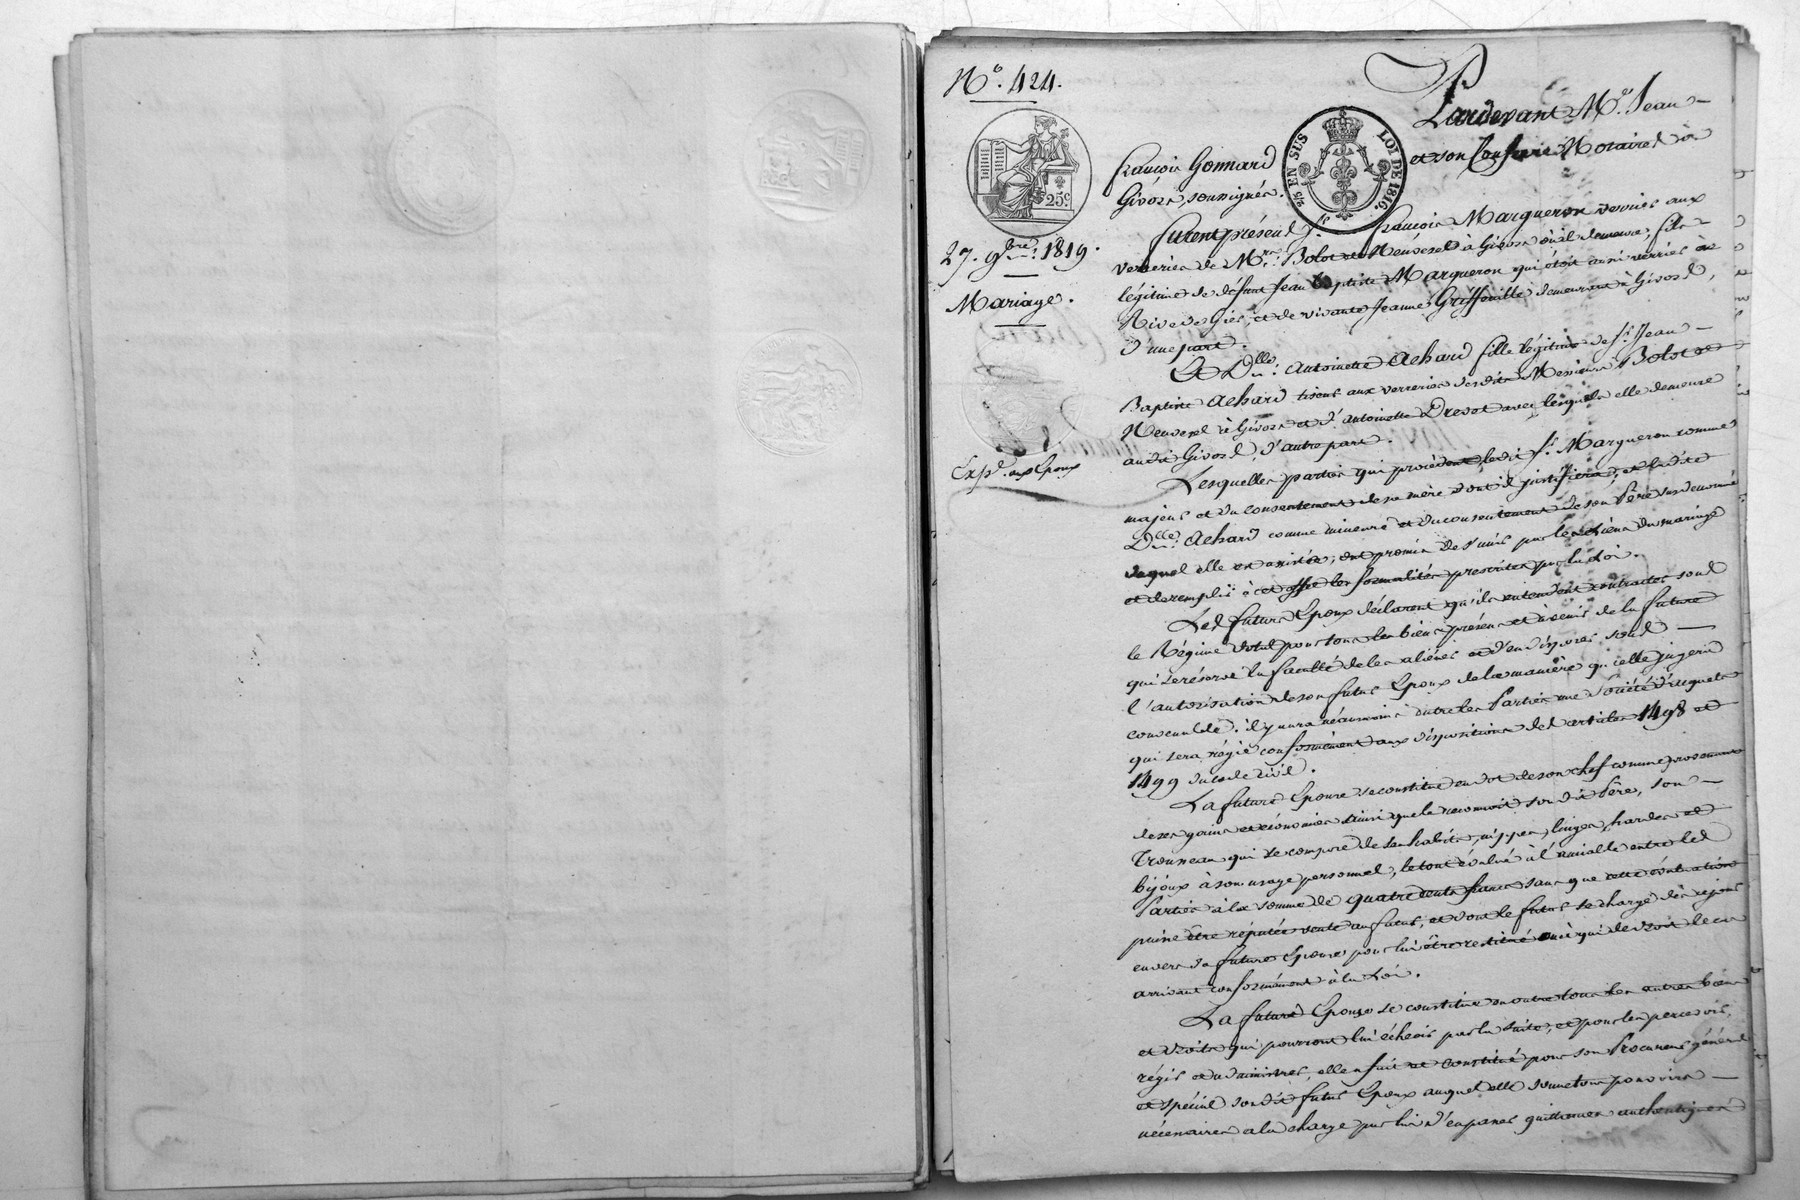 N.º 424.
25c
5/10 EN SUS LOI DE 1816.
27. 9bre. 1819.
Mariage.
Expé. aux Epoux
Pardevant Me. Jean-
François Gonnard et son Confrere Notaires à
Givors, soussignés.
Furent présens Sr. François Margueron verrier aux
verreries de Mrs. Bolot et Neuvesel à Givors où il demeure, fils
légitime de défunt Jean Baptiste Margueron qui étoit aussi verrier à
Rive de Gier, et de vivante Jeanne Griffouille demeurant à Givors,
d'une part.
Et Dlle. Antoinette Achard fille légitime de Sr. Jean-
Baptiste Achard tiseur aux verreries desdits Messieurs Bolot et
Neuvesel à Givors et d'Antoinette Drevot avec lesquels elle demeure
audit Givors, d'autre part.
Lesquelles parties qui procèdent, ledit Sr. Margueron comme
majeur et du consentement de sa mère dont il justifiera, et ladite
Dlle. Achard comme mineure et du consentement de son Père susnommé
duquel elle est assistée, ont promis de s'unir par les liens du mariage
et de remplir à cet effet les formalités prescrites par la Loi.
Les futurs Epoux déclarent qu'ils entendent contracter sous
le Régime dotal pour tous les biens présens et à venir de la future
qui se réserve la faculté de les aliéner et d'en disposer sous
l'autorisation de son futur Epoux de la manière qu'elle jugera
convenable. il y aura néanmoins entre les Parties une Société d'acquets
qui sera régie conformément aux dispositions des articles 1498 et
1499 du code Civil.
La future Epouse se constitue en dot de son chef comme provenant
de ses gains et économies ainsi que le reconnoit son dit Père, son
Trousseau qui se compose de ses habits, nippes, linges, hardes et
bijoux à son usage personnel, le tout évalué à l'amiable entre les
Parties à la somme de quatre cents francs sans que cette évaluation
puisse être réputée vente au futur, et dont le futur se charge dès ce jour
envers sa future Epouse pour lui être restitué ou à qui de droit le cas
arrivant conformément à la Loi.
La future Epouse se constitue en outre tous les autres biens
et droits qui pourront lui échoir par la suite, et pour les percevoir,
régir et administrer, elle a fait et constitué pour son Procureur général
et spécial son dit futur Epoux auquel elle donne tous pouvoirs
nécessaires à la charge par lui d'en passer quittances authentiques